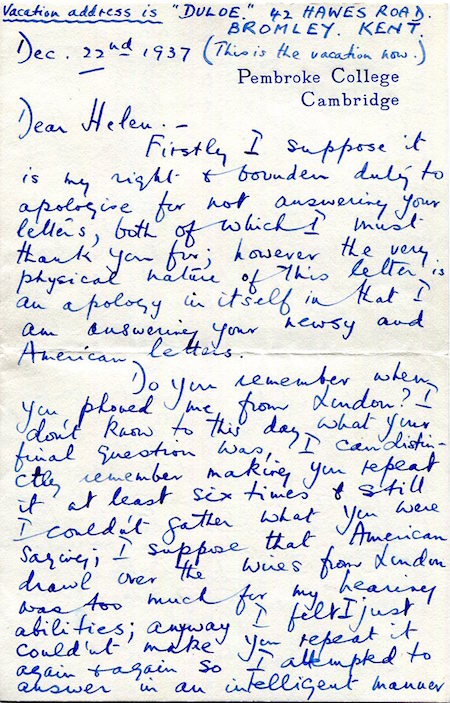 Vacation address is "DULOE." 42 HAWES ROAD.
BROMLEY. KENT.
Dec. 22nd 1937 (This is the vacation now.)
Pembroke College
Cambridge
Dear Helen. -
Firstly I suppose it
is my right & bounden duty to
apologise for not answering your
letters, both of which I must
thank you for; however the very
physical nature of this letter is
an apology in itself in that I
am answering your newsy and
American letters.
Do you remember when
you phoned me from London? I
don't know to this day what your
final question was, I can distin-
ctly remember making you repeat
it at least six times & still
I couldn't gather what you were
saying; I suppose that American
drawl over the wires from London
was too much for my hearing
abilities; anyway I felt I just
could'nt make you repeat it
again & again so I attempted to
answer in an intelligent manner